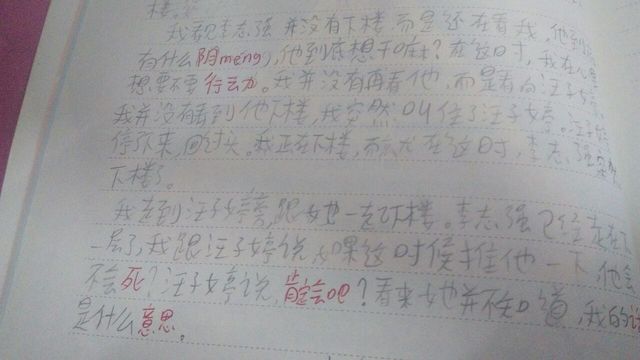 楼。
我和李志强并没有下楼而是还在看我,他到底
有什么阴méng,他到底想干啥?在这时,我在心里
想要不要行动。我并没有再看他,而是看向汪子婷
我并没有看到他下楼,我突然叫住了汪子婷。汪子婷
停下来,回过头。我正在下楼,而就在这时,李志强
下楼了。
我走到汪子婷旁,跟她一起下楼。李志强已经走在下
一层了,我跟汪子婷说,如果这时候推他一下他会
不会死?汪子婷说,肯定会吧?看来她并不知道,我的话
是什么意思。